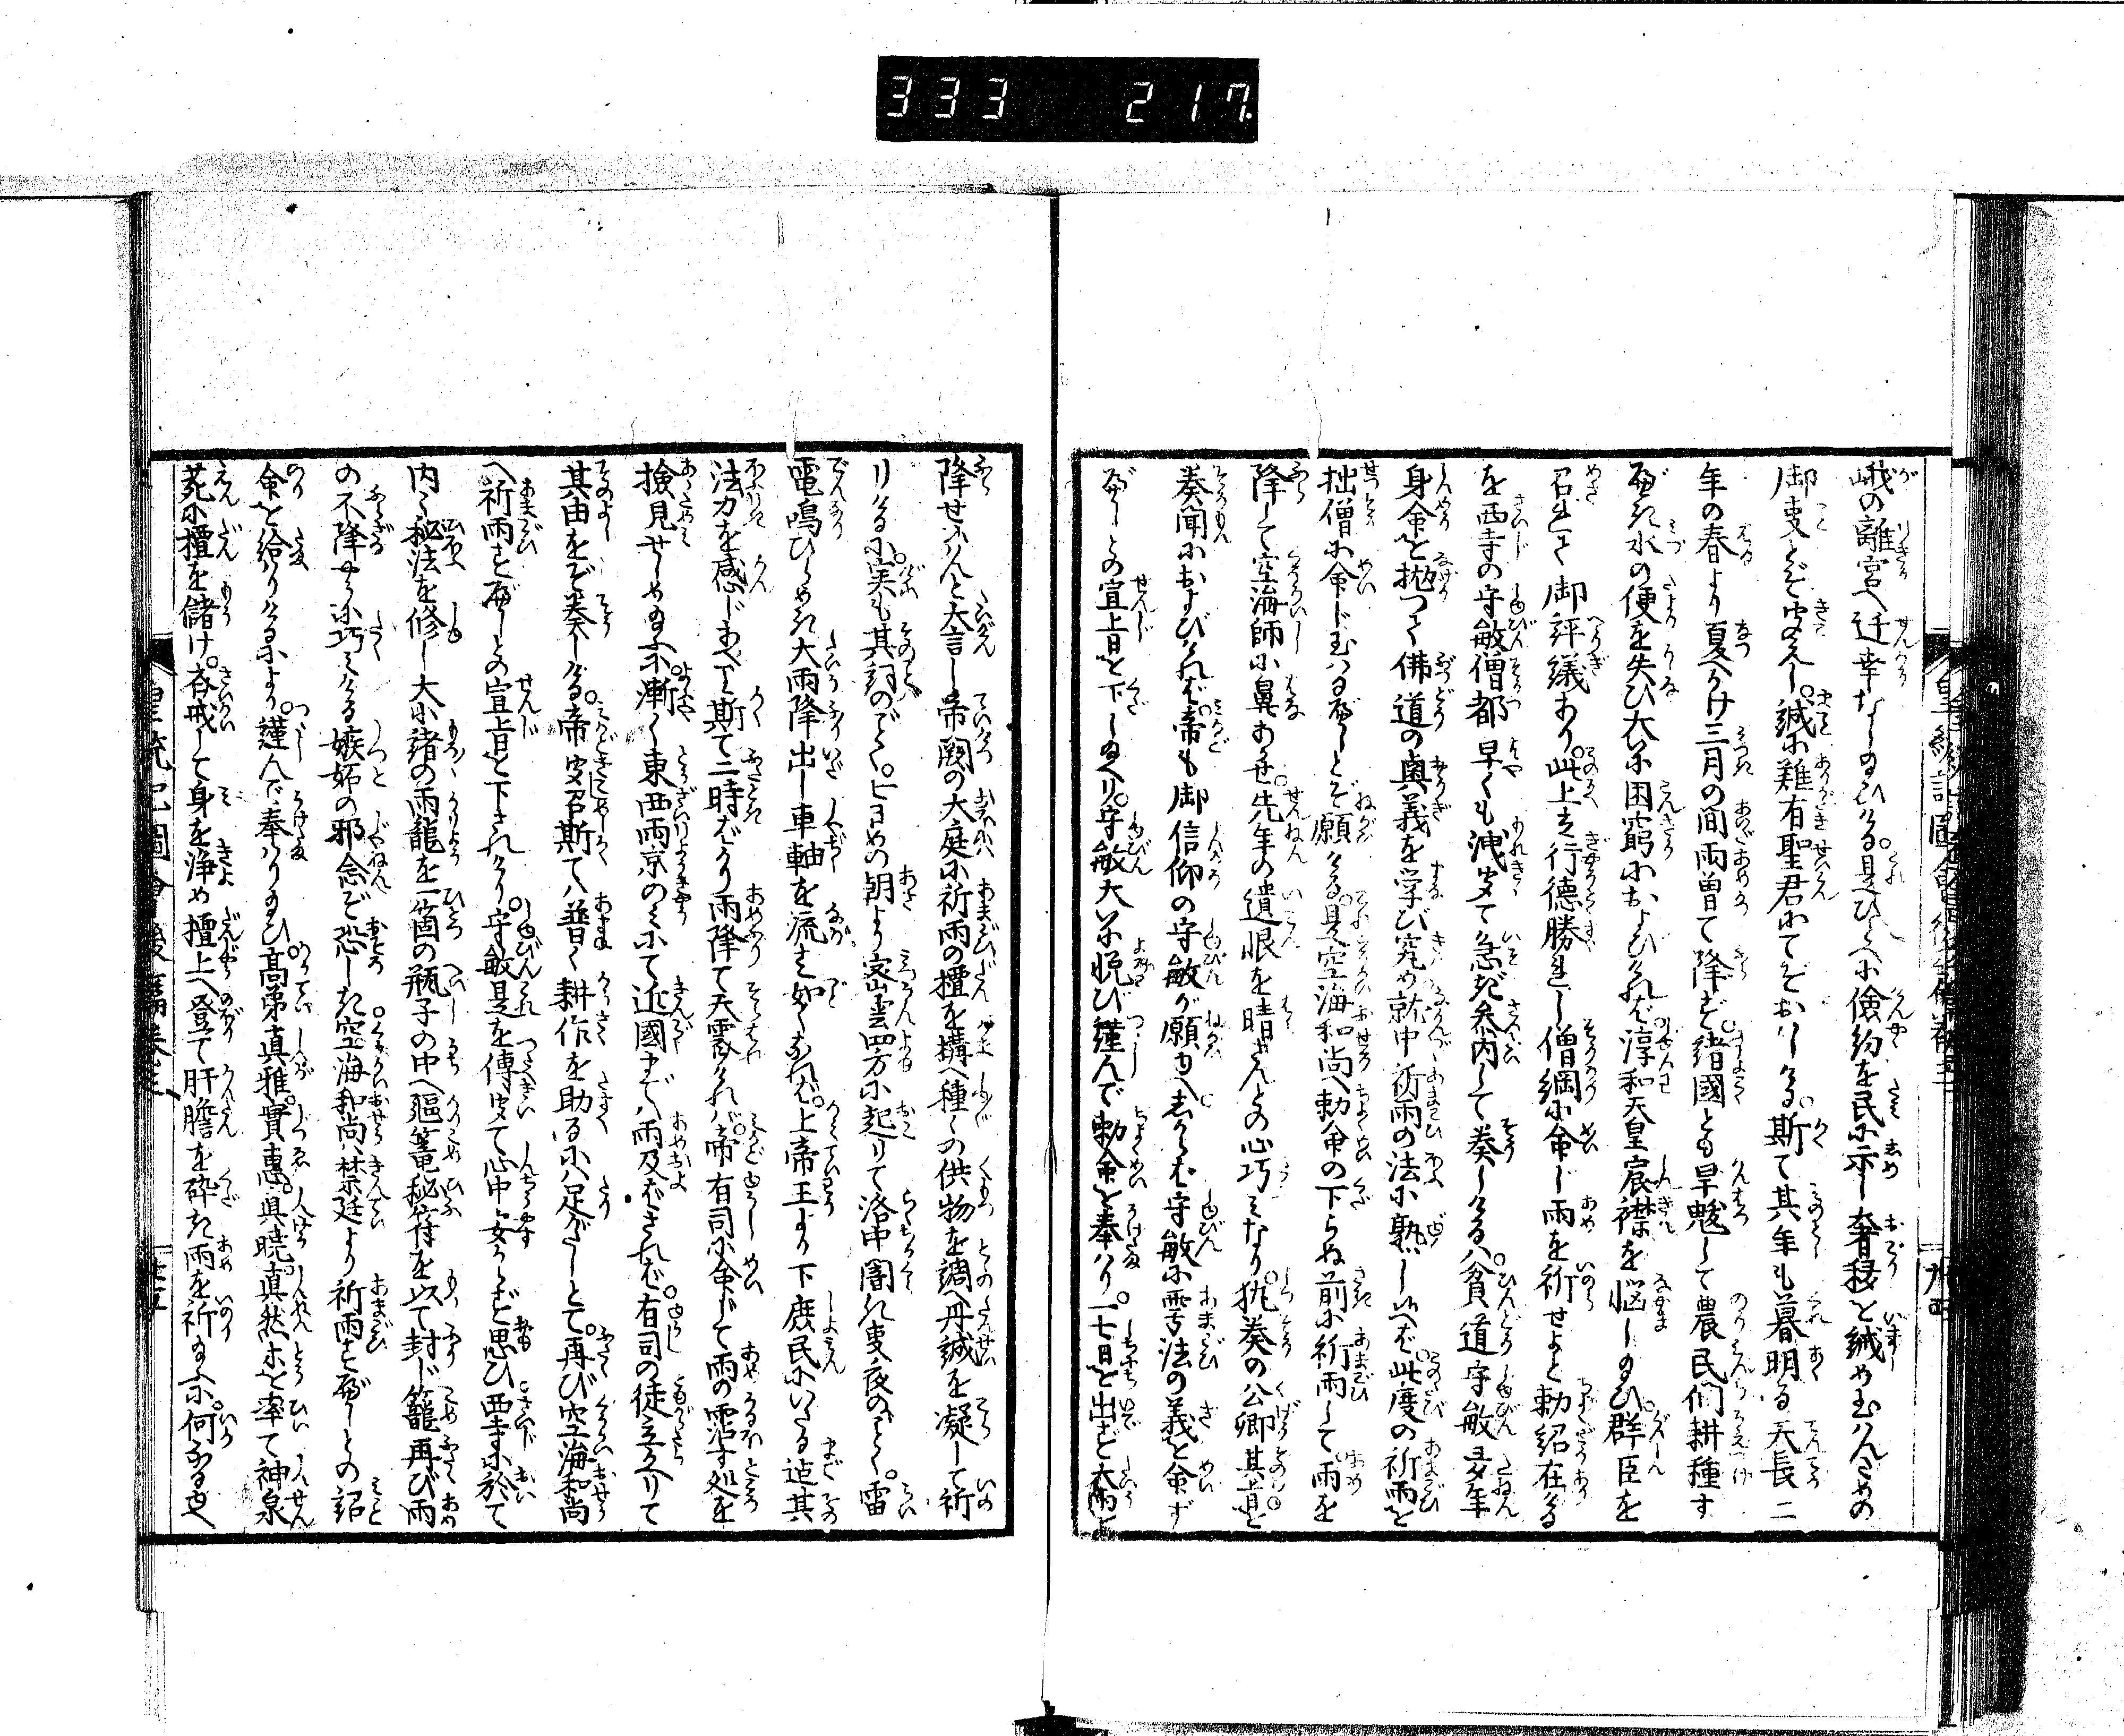 333 217
峨の離宮へ迁幸なし給ひける是ひとへに儉約を民に示し奢移を緘め玉はんための
御叓とぞ聞えし。誠に難有聖君にてぞおはしける。斯て其年も暮明る天長二
年の春より夏へかけ三月の間雨曽て降ず。諸國とも旱魃して農民們耕種す
べき水の便を失ひ大に困窮におよびければ。淳和天皇宸襟を悩し給ひ。群臣を
召れて御評議あり。此上は行徳勝れし僧綱に命じ雨を祈せよと勅紹在ける
を西寺の守敏僧都早くも洩聞て急ぎ参内して奏しけるハ。貧道守敏多年
身命を抛つて佛道の奥義を学び究め就中祈雨の法に熟し候へば此度の祈雨を
拙僧に命じ玉はるべしとぞ願ける。是空海和尚へ勅命の下らぬ前に祈雨して雨を
降して空海師に鼻あかせ。先年の遺恨を晴さんとの心巧ミなり。執奏の公卿其旨を
奏聞におよびければ。帝も御信仰の守敏が願ゆへ。しからば守敏に雩法の義を命ず
べしとの宣旨を下し給へり。守敏大に悦び謹んで勅命を奉はり。一七日を出ず大雨を
降せ候はんと大言し帝闕の大庭に祈雨の壇を搆へ種々の供物を調へ丹誠を凝して祈
りけるに。実も其詞のごとく。七日めの朝より密雲四方に起りて洛中闇き叓夜のごとく。雷
電鳴ひらめき大雨降出し車軸を流す如くなれば。上帝王より下庶民にいたる迠其
法力を感じあへり。斯て二時ばかり雨降て天霽ければ。帝有司に命じて雨の霑す処を
撿見せしめ給ふに。漸く東西両京のミにて近國までハ雨及ばざれば。有司の徒立かへりて
其由をぞ奏しける。帝聞召斯てハ普く耕作を助るにハ足がたしとて。再び空海和尚
へ祈雨すべしとの宣旨を下されけり。守敏是を傳聞て心中安からず思ひ。西寺に於て
内々秘法を修し大小諸の雨龍を一箇の瓶子の中へ駈篭秘符を以て封じ籠再び雨
の不降やうに巧ミける嫉妬の邪念ぞ恐しき。空海和尚ハ禁廷より祈雨すべしとの詔
命を給りけるにより。謹んで奉はり給ひ。高弟真雅。實惠。真暁。真然。等を率て神泉
苑に壇を儲け。斎戒して身を浄め壇上へ登て肝膽を碎き雨を祈給ふに。何なる也